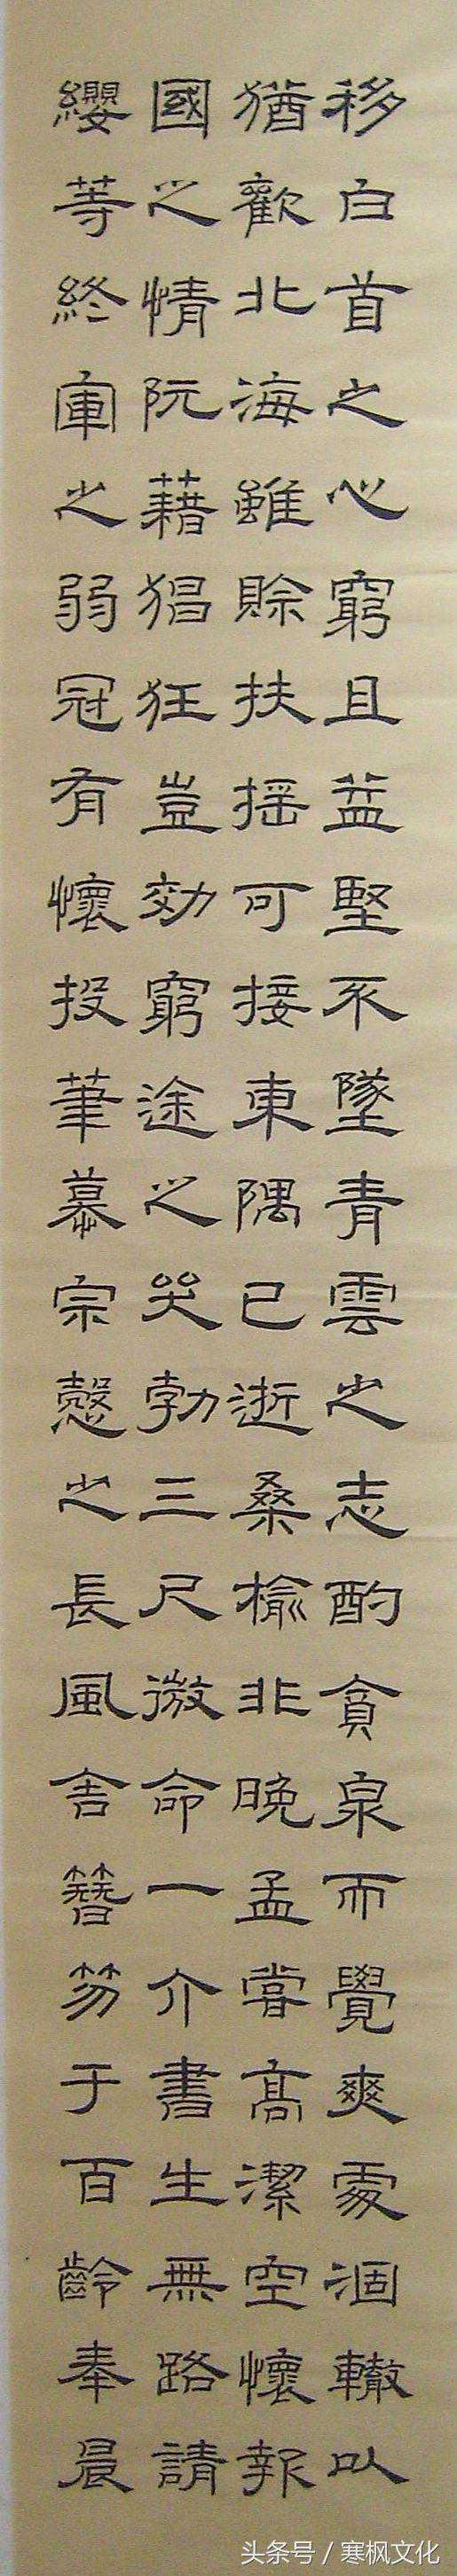 移白首之心窮且益堅不墜青雲之志酌貪泉而覺爽處涸轍以
猶歡北海雖賒扶揺可接東隅已逝桑榆非晚孟嘗高潔空懷報
國之情阮藉猖狂豈効窮途之哭勃三尺微命一介書生無路請
纓等終軍之弱冠有懷投筆慕宗慤之長風舍簪笏于百齡奉晨
头条号 / 寒枫文化